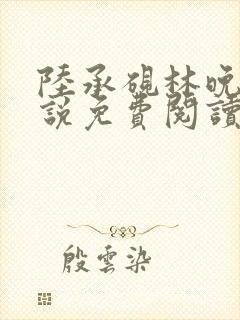 陸承硯林晚
說免費閱讀
殷雲染